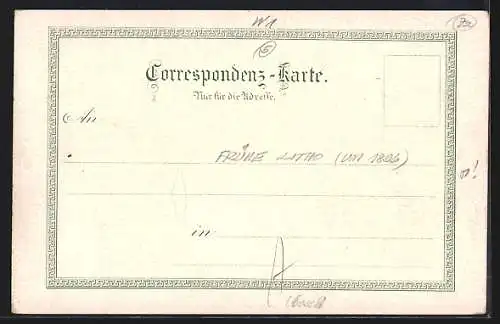 W1
5
Correspondenz-Karte.
Nur für die Adresse.
An
FRÜHE LITHO (UM 1896)
in